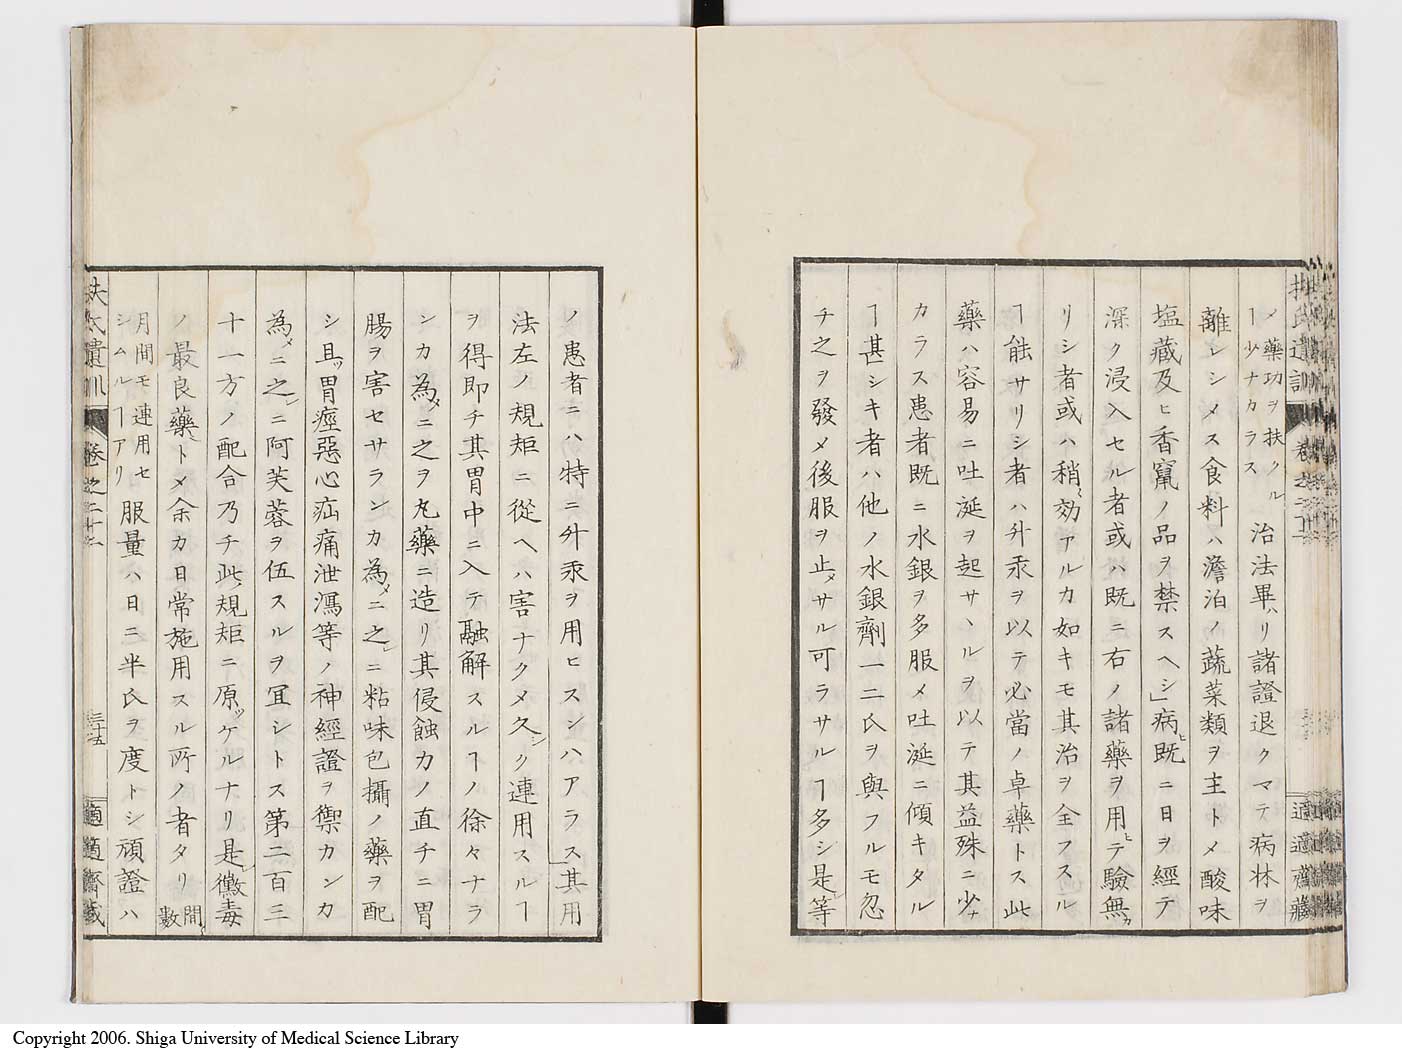 扶氏遺訓
卷之二十二
適適齋藏
メ藥功ヲ扶クル
ヿ少ナカラス
治法畢ハリ諸證退クマテ病牀ヲ
離レシメス食料ハ澹泊ノ蔬菜類ヲ主トメ酸味
塩藏及ヒ香竄ノ品ヲ禁スヘシ」病ヒ既ニ日ヲ經テ
深ク浸入セル者或ハ既ニ右ノ諸藥ヲ用ヒテ驗無カ
リシ者或ハ稍〻効アルカ如キモ其治ヲ全フスル
ヿ能サリシ者ハ升汞ヲ以テ必當ノ卓藥トス此
藥ハ容易ニ吐涎ヲ起サヽルヲ以テ其益殊ニ少ナ
カラス患者既ニ水銀ヲ多服メ吐涎ニ傾キタル
ヿ甚シキ者ハ他ノ水銀劑一二氏ヲ與フルモ忽
チ之ヲ發メ後服ヲ止メサル可ラサルヿ多シ是等
ノ患者ニハ特ニ升汞ヲ用ヒスンハアラス」其用
法左ノ規矩ニ從ヘハ害ナクメ久シク連用スルヿ
ヲ得即チ其胃中ニ入テ融解スルヿノ徐々ナラ
ンカ為メニ之ヲ丸藥ニ造リ其侵蝕力ノ直チニ胃
腸ヲ害セサランカ為メニ之レニ粘味包攝ノ藥ヲ配
シ且ツ胃痙惡心疝痛泄瀉等ノ神經證ヲ禦カンカ
為メニ之レニ阿芙蓉ヲ伍スルヲ冝シトス第二百三
十一方ノ配合乃チ此規矩ニ原ツケルナリ是レ黴毒
ノ最良藥ニメ余カ日常施用スル所ノ者タリ
間〻數
月間モ連用セ
シムルヿアリ
服量ハ日ニ半氏ヲ度トシ頑證ハ
扶氏遺訓
卷之二十二
三十五
適適齋藏
Copyright 2006. Shiga University of Medical Science Library